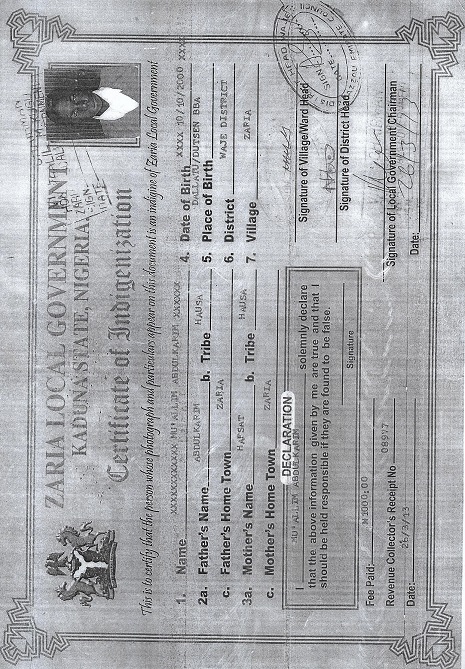 ZARIA LOCAL GOVERNMENT
KADUNA STATE, NIGERIA
Certificate of Indigenization
This is to certify that the person whose photograph and particulars appear on this document is an indigine of Zaria Local Government
1. Name MU'ALLIM ABDULKARIM XXXXXX
2a. Father's Name ABDULKARIM b. Tribe HAUSA
c. Father's Home Town ZARIA
3a. Mother's Name HAFSAT b. Tribe HAUSA
c. Mother's Home Town ZARIA
4. Date of Birth XXXX 10/10/2000 XXXX
5. Place of Birth DALLATU/DUTSEN BBA
6. District WAJE DISTRICT
7. Village ZARIA
DECLARATION
I MU'ALLIM ABDULKARIM solemnly declare
that the above information given by me are true and that I
should be held responsible if they are found to be false.
Signature
Signature of Village/Ward Head
Signature of District Head
Fee Paid: N3000:00
Revenue Collector's Receipt No 08917
Date: 26/3/13
Signature of Local Government Chairman
Date: 26/3/13